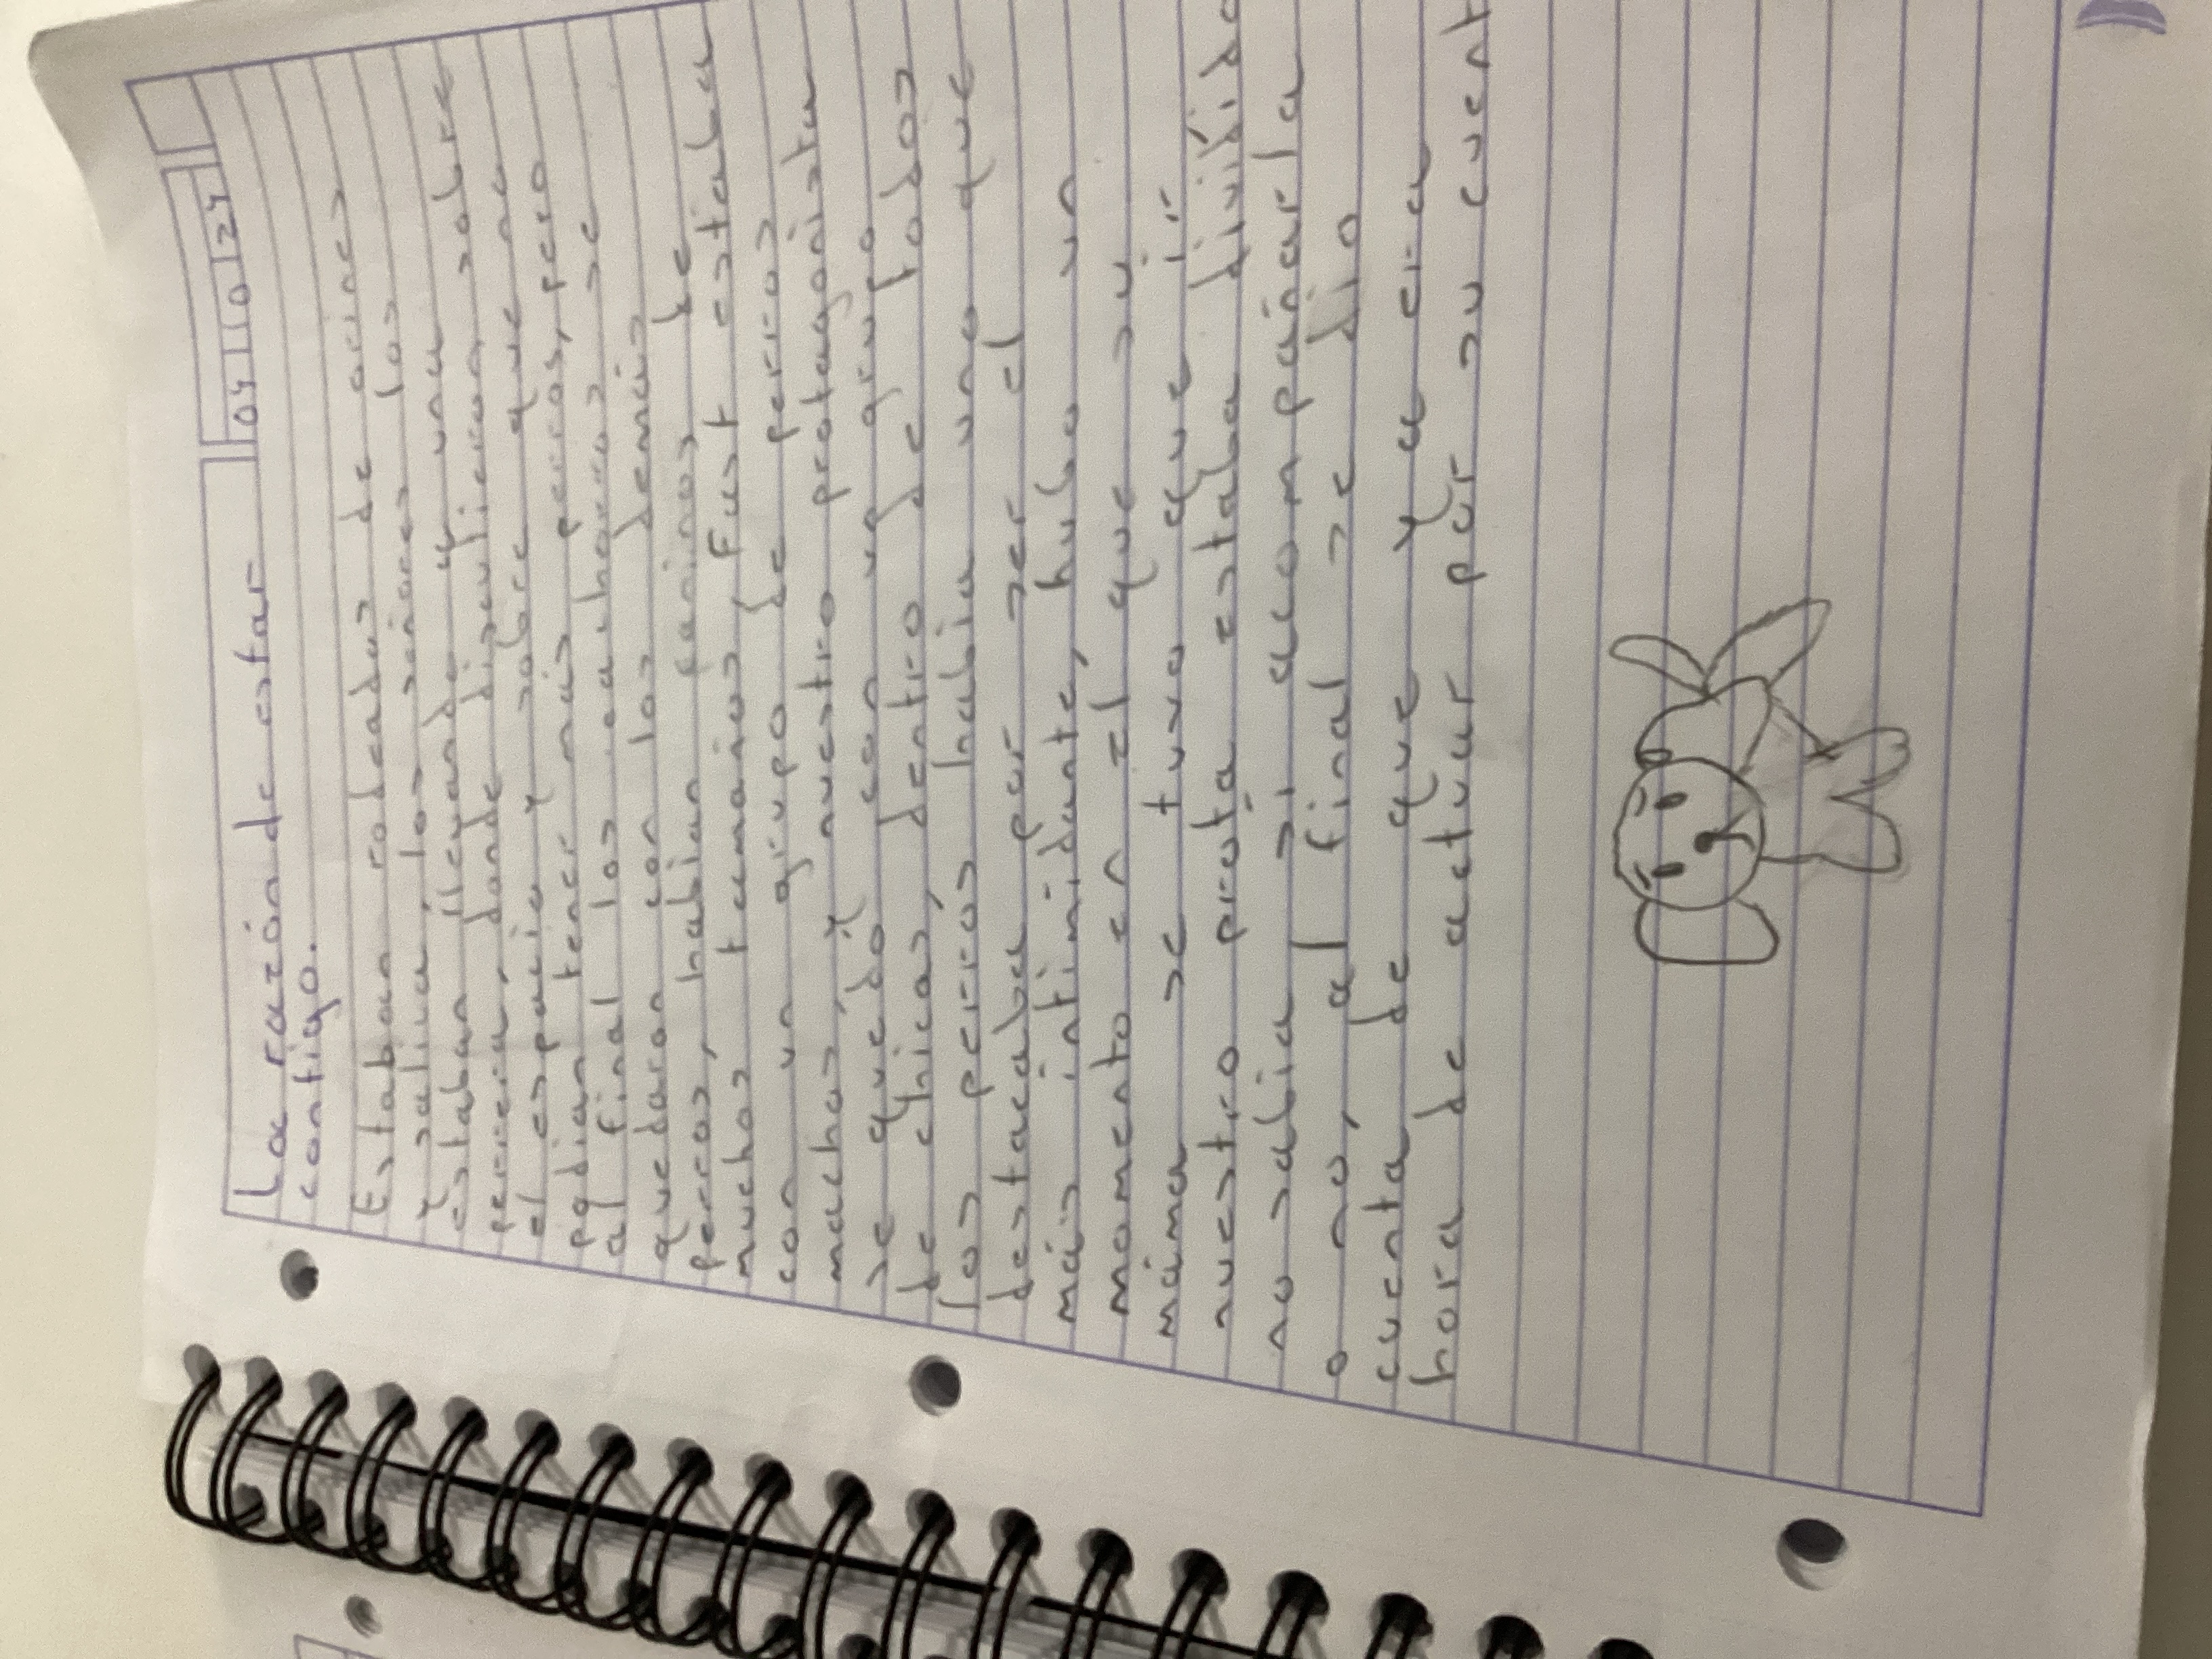 04 10 24
La razón de estar
contigo.
Estaban rodeadas de orines
y saliva, los señores los
estaban llevando a una
perrera, donde disputieron sobre
el espacio y sobre que no
podían tener más perros, pero
al final los cachorros se
quedaron con los demás
perros, habían caninos de
muchos tamaños, Fust estaba
con un grupo de perros
machos, y nuestro protagonista
se quedó con un grupo
de chicas, dentro de todos
los perros había uno que
destacaba por ser el
más intimidante, hubo un
momento en el que su
máma se tuvo que ir
nuestro prota estaba dividido
no sabía si acompañarla
o no, al final se dio
cuenta de que ya era
hora de actuar por su cuent